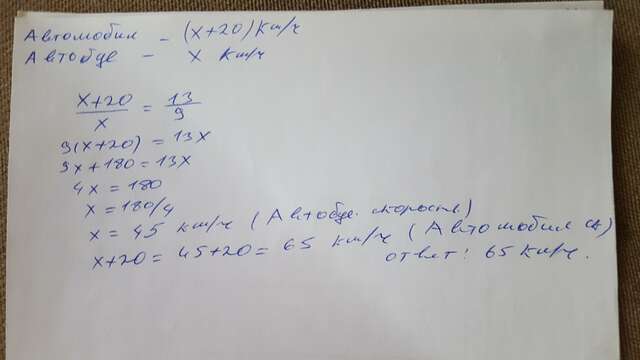 Автомобил - (x+20) км/ч
Автобус - x км/ч
x+20/x = 13/9
9(x+20) = 13x
9x+180=13x
4x = 180
x = 180/4
x = 45 км/ч (Автобус. скорость)
x+20=45+20=65 км/ч (Автомобил ск)
ответ: 65 км/ч.